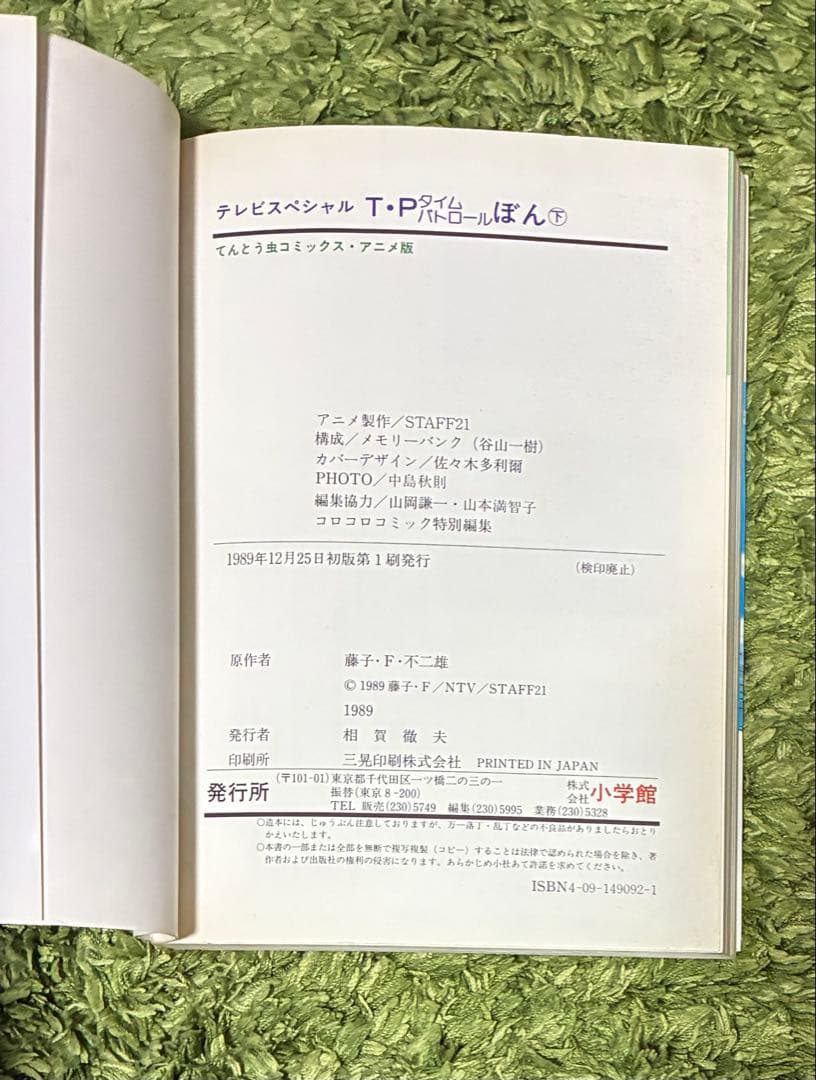 テレビスペシャル T・Pタイムパトロールぼん下
てんとう虫コミックス・アニメ版
アニメ製作／STAFF21
構成／メモリーバンク（谷山一樹）
カバーデザイン／佐々木多利爾
PHOTO／中島秋則
編集協力／山岡謙一・山本満智子
コロコロコミック特別編集
1989年12月25日初版第1刷発行 （検印廃止）
原作者 藤子・F・不二雄
© 1989 藤子・F／NTV／STAFF21
1989
発行者 相賀徹夫
印刷所 三晃印刷株式会社 PRINTED IN JAPAN
発行所 （〒101-01）東京都千代田区一ツ橋二の三の一 株式会社 小学館
振替（東京8-200）
TEL 販売(230)5749 編集(230)5995 業務(230)5328
○造本には、じゅうぶん注意しておりますが、万一落丁・乱丁などの不良品がありましたらおとり
かえいたします。
○本書の一部または全部を無断で複写複製（コピー）することは法律で認められた場合を除き、著
作者および出版社の権利の侵害になります。あらかじめ小社あて許諾を求めてください。
ISBN4-09-149092-1